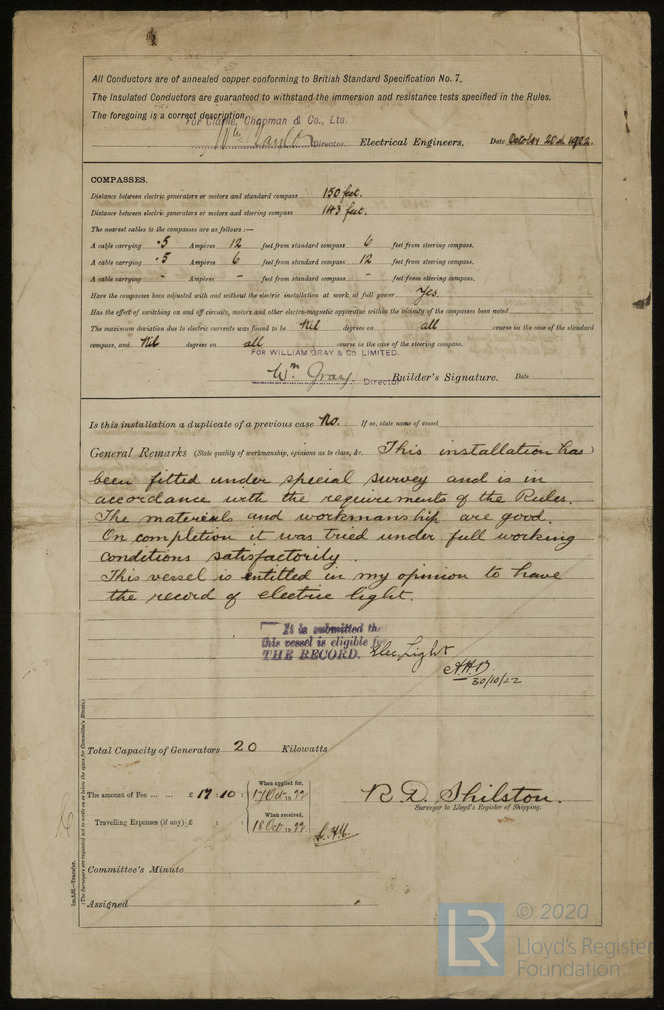 All Conductors are of annealed copper conforming to British Standard Specification No. 7.
The Insulated Conductors are guaranteed to withstand the immersion and resistance tests specified in the Rules.
The foregoing is a correct description,
For Clarke, Chapman & Co., Ltd.
Director. Electrical Engineers. Date October 20th 1922.
COMPASSES.
Distance between electric generators or motors and standard compass 150 feet.
Distance between electric generators or motors and steering compass 143 feet.
The nearest cables to the compasses are as follows :—
A cable carrying .5 Ampères 12 feet from standard compass 6 feet from steering compass.
A cable carrying .5 Ampères 6 feet from standard compass 12 feet from steering compass.
A cable carrying - Ampères - feet from standard compass - feet from steering compass.
Have the compasses been adjusted with and without the electric installation at work at full power Yes.
Has the effect of switching on and off circuits, motors and other electro-magnetic apparatus within the vicinity of the compasses been noted
The maximum deviation due to electric currents was found to be Nil degrees on all course in the case of the standard
compass, and Nil degrees on all course in the case of the steering compass.
FOR WILLIAM GRAY & CO. LIMITED.
Wm Gray. Director Builder's Signature. Date
Is this installation a duplicate of a previous case No. If so, state name of vessel
General Remarks (State quality of workmanship, opinions as to class, &c. This installation has
been fitted under special survey and is in
accordance with the requirements of the Rules.
The materials and workmanship are good.
On completion it was tried under full working
conditions satisfactorily.
This vessel is entitled in my opinion to have
the record of electric light.
It is submitted that
this vessel is eligible for
THE RECORD. Elec. Light
30/10/22
Total Capacity of Generators 20 Kilowatts
The amount of Fee ... ... £ 17 : 10 :
When applied for,
17 Oct 1922
R. D. Shilston.
Surveyor to Lloyd's Register of Shipping.
Travelling Expenses (if any) £ : :
When received,
18 Oct 1922
Committee's Minute
Assigned
(The Surveyors are requested not to write on or below the space for Committee's Minute.)
© 2020
LR
Lloyd's Register
Foundation